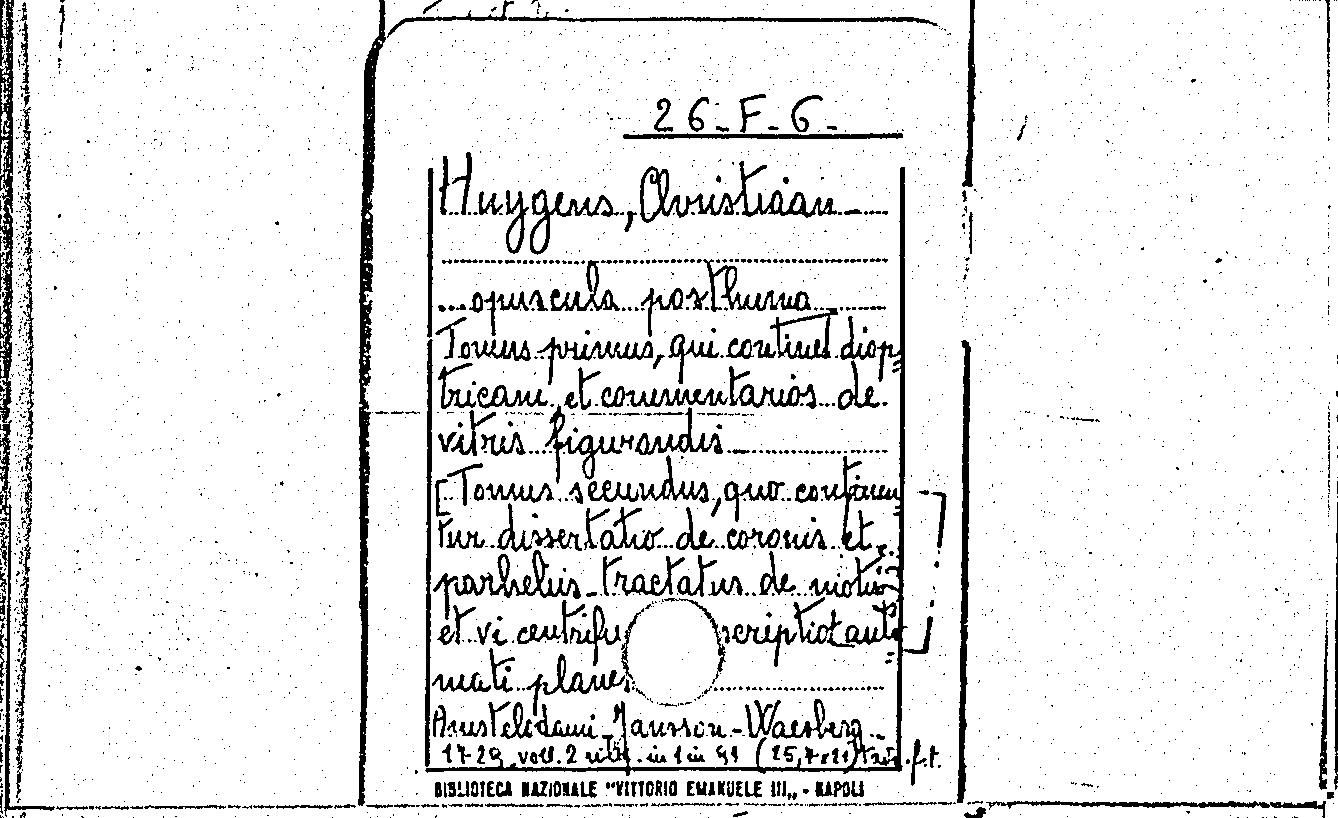 26-F-6-
Huygens, Christiaan
...opuscula posthuma
Tomus primus, qui continet diop=
tricam et commentarios de
vitris figurandis
[Tomus secundus, quo continen=
tur dissertatio de coronis et
parheliis - tractatus de motu
et vi centrifu scriptio auto=
mati plane
Amstelodami - Jansson - Waesberg -
1728 voll. 2 in 1 in f.t.
BIBLIOTECA NAZIONALE "VITTORIO EMANUELE III„ - NAPOLI